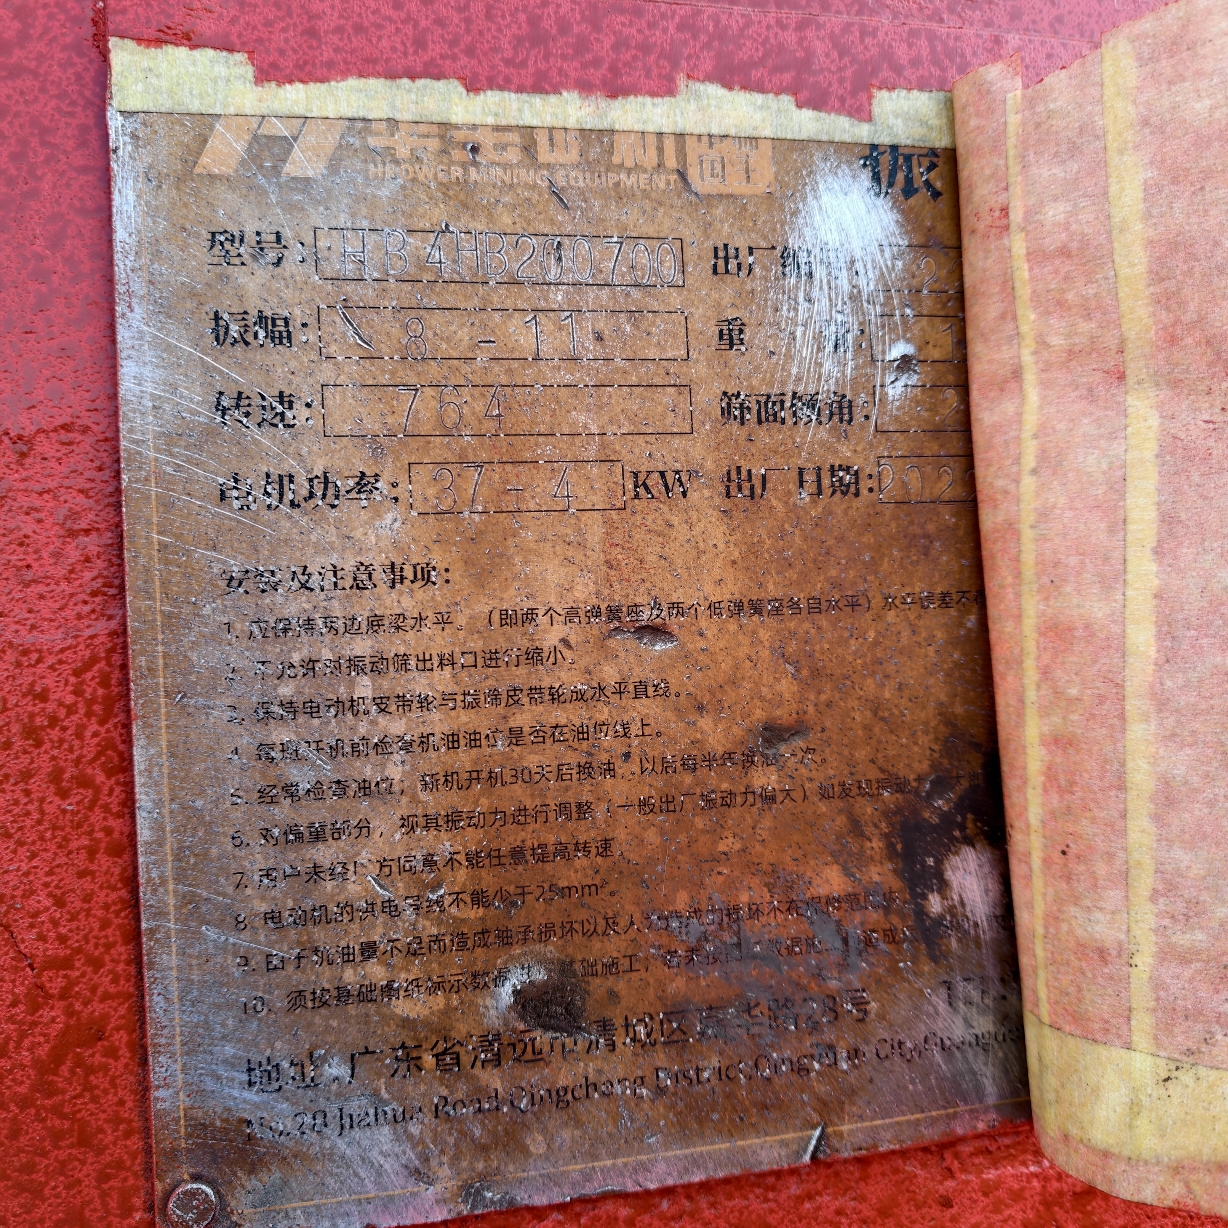 HPOWER MINING EQUIPMENT
振
型号: HB4HB200700 出厂编
振幅: 8 - 11 重
转速: 764 筛面倾角: 2
电机功率: 37 - 4 KW 出厂日期: 2022
安装及注意事项:
1. 应保持两边底梁水平。(即两个高弹簧座及两个低弹簧座各自水平) 水平误差不
2. 不允许对振动筛出料口进行缩小。
3. 保持电动机皮带轮与振筛皮带轮成水平直线。
4. 每班开机前检查机油油位是否在油位线上。
5. 经常检查油位, 新机开机30天后换油, 以后每半年换油一次。
6. 对偏重部分, 视其振动力进行调整 (一般出厂振动力偏大) 如发现振动力
7. 用户未经厂方同意不能任意提高转速。
8. 电动机的供电导线不能少于25mm²。
9. 由于机油量不足而造成轴承损坏以及人为造成的损坏不在保修范围内。
10. 须按基础图纸标示数据 基础施工, 若未按 数据施 造成
地址:广东省清远市清城区嘉华路28号
No.28 Jiahua Road,Qingcheng District,Qingyuan City,Guangdo